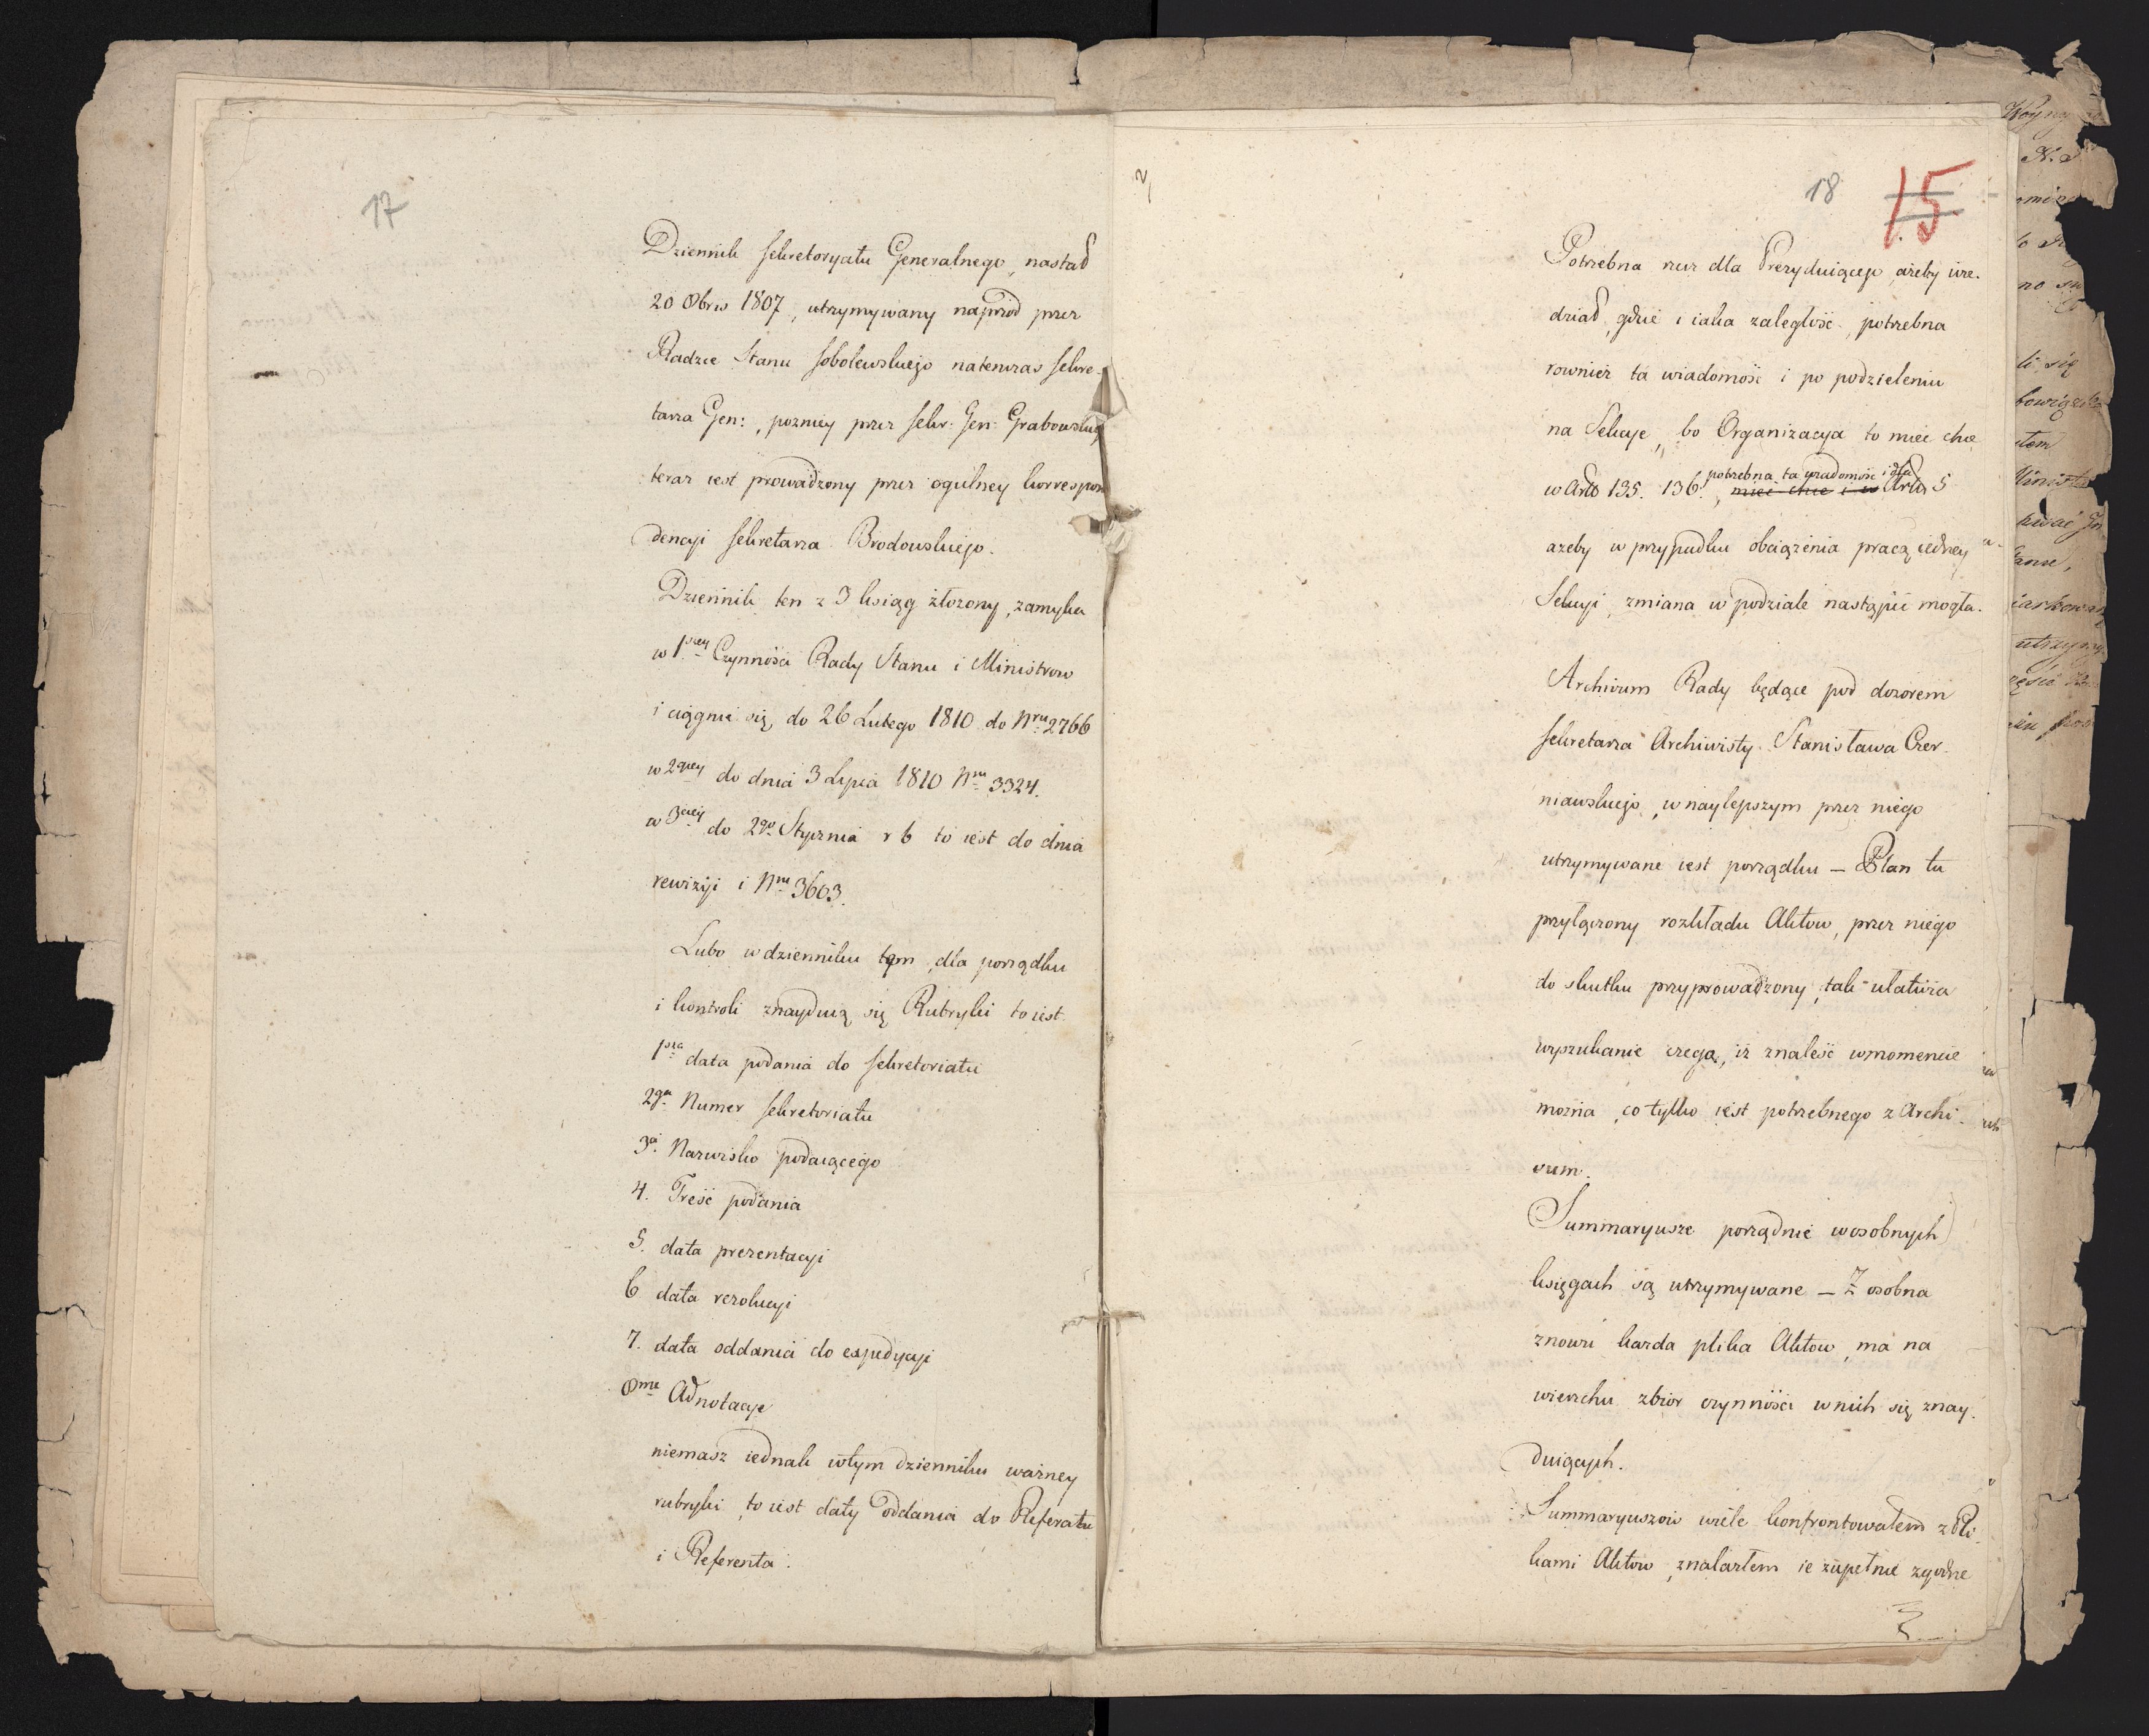 17
Dziennik Sekretoryatu Generalnego, nastał
20 8bris 1807, utrzymywany naprzod przez
Radzce Stanu Sobolewskiego natenczas Sekre-
tarza Gen:, pozniey przez Sekr: Gen: Grabowskieg
teraz iest prowadzony przez ogulney korrespon
dencyi Sekretarza Brodowskiego.
Dziennik ten z 3 ksiąg złozony, zamyka
w 1szey Czynności Rady Stanu i Ministrow
i ciągnie się do 26 Lutego 1810 do Nru 2766
w 2giey do dnia 3 Lipca 1810 Nru 3324.
w 3ciey do 2go Stycznia r b to iest do dnia
rewizyi i Nru 3603.
Lubo w dzienniku tym, dla porządku
i kontroli znayduią się Rubryki to iest
1sza data podania do Sekretoriatu
2ga Numer Sekretoriatu
3a Nazwisko podaiącego
4. Treść podania
5. data prezentacyi
6 data rezolucyi
7. data oddania do expedycyi
8me Adnotacye
niemasz iednak w tym dzienniku ważney
rubryki to iest daty oddania do Referatu
i Referenta.
2,
18 15
Potrzebna rzecz dla Prezyduiącego, ażeby wie-
dział, gdzie i iaka zaległość, potrzebna
rownież ta wiadomość i po podzieleniu
na Sekcye, bo Organizacya to mieć chce
potrzebna ta wiadomość i dla
w Arto 135. 136., mieć chce i w Artu 5
azeby w przypadku obciązenia pracą iedney
Sekcyi, zmiana w podziale nastąpić mogła.
Archivum Rady będące pod dozorem
Sekretarza Archiwisty Stanisława Czer-
niawskiego, w naylepszym przez niego
utrzymywane iest porządku — Plan tu
przyłączony rozkładu Aktow, przez niego
do skutku przyprowadzony, tak ułatwia
wyszukanie czego, iż znaleść w momencie
można, co tylko iest potrzebnego z Archi-
vum.
Summaryusze porządnie w osobnych
księgach są utrzymywane — Z osobna
znowu każda plika Aktow, ma na
wierzchu zbior czynności w nich się znay-
duiących.
Summaryuszow wiele konfrontowałem z Pli-
kami Aktow, znalazłem ie zupełnie zgodne